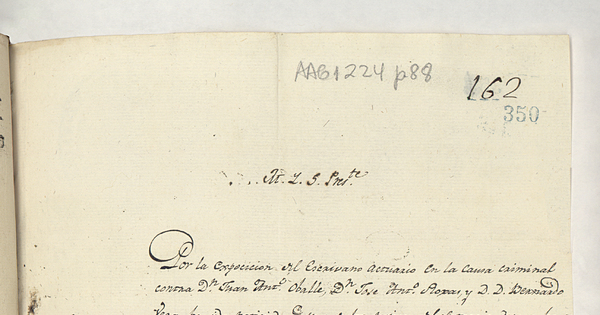 AAG1224 p88
162
350
M. I. S. Pres.te
Por la exposicion del Escrivano actuario en la causa criminal
contra Dn. Juan Anto. Oballe, Dn. Jose Anto. Roxas, y D. D. Bernardo